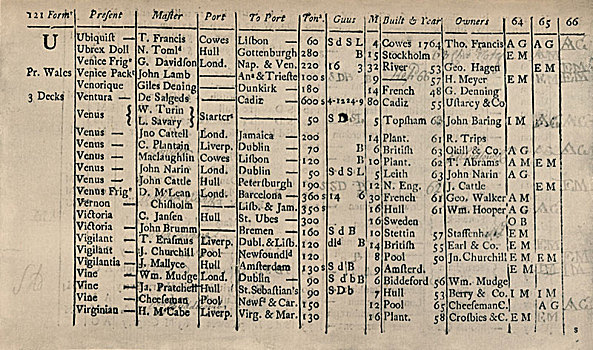 121 Form^r Present Master Port To Port Ton^s. Guns M Built & Year Owners 64 65 66
U Ubiquist — T. Francis Cowes Lisbon 60 S d S L 4 Cowes 1764 Tho. Francis A G A G
Ubrex Doll N. Toml^d Hull Gottenburgh 280 B 15 Stockholm E M
Venice Frig^e G. Davidson Lond. Nap. & Ven. 220 16 3 32 River 53 Geo. Hagen E M
Pr. Wales Venice Pack^t John Lamb An^a & Trieste 100 s 9 H. Meyer E M
Venorique Giles Dening Dunkirk 180 14 French 48 G. Denning
3 Decks Ventura — De Salgeds Cadiz 600 s 4-12 24-9 80 Cadiz 55 Ustarcy & Co
Venus { W. Turin
L. Savary } Startcr^s 50 S D 5 Topsham 63 John Baring I M A G
Venus — Jno Cattell Lond. Jamaica 200 14 Plant. 61 R. Trips
Venus — C. Plantain Liverp. Dublin 70 B 6 British 63 Okill & Co. A G
Venus — Maclaughlin Cowes Lisbon 120 B 10 Plant. 62 T. Abrams A M E M
Venus — John Narin Lond. Dublin 50 S d S L 5 Leith 63 John Narin A G
Venus — John Cattle Hull Petersburgh 190 s 12 N. Eng. J. Cattle E M
Venus Frig^e J. M^cLean Lond. Barcelona — 360 s 14 6 30 French 61 Geo. Walker A M
Vernon — Chisholm — Lisb. & Jam. 350 s 16 Hull 61 Wm. Hooper A G
Victoria C. Jansen Hull St. Ubes — 300 16 Sweden O B
Victoria John Brumm — Bremen — 160 S d B 10 Stettin 57 E M
Vigilant — T. Erasmus Liverp. Dubl. & Lisb. 120 d l^d B 14 British 55 Earl & Co. E M
Vigilant — J. Churchill Pool Newfound^ld 120 8 Pool 50 Jn. Churchill E M E M
Vigilantia — J. Mallyce Hull Amsterdam 130 s S d B 9 Amsterd. E M
Vine — Wm. Mudge Lond. Dublin 90 S d B 6 Biddeford 56 Wm. Mudge
Vine — Ja. Pratchell Hull St. Sebastian's 90 S D b 7 Hull 53 Berry & Co. I M I M
Vine — Cheeseman Pool Newf^d & Car. 150 12 Pool 65 Cheeseman C. A G
Virginian — H. M^cCabe Liverp. Virg. & Mar. 130 16 Plant. 58 Crosbies & C. E M E M